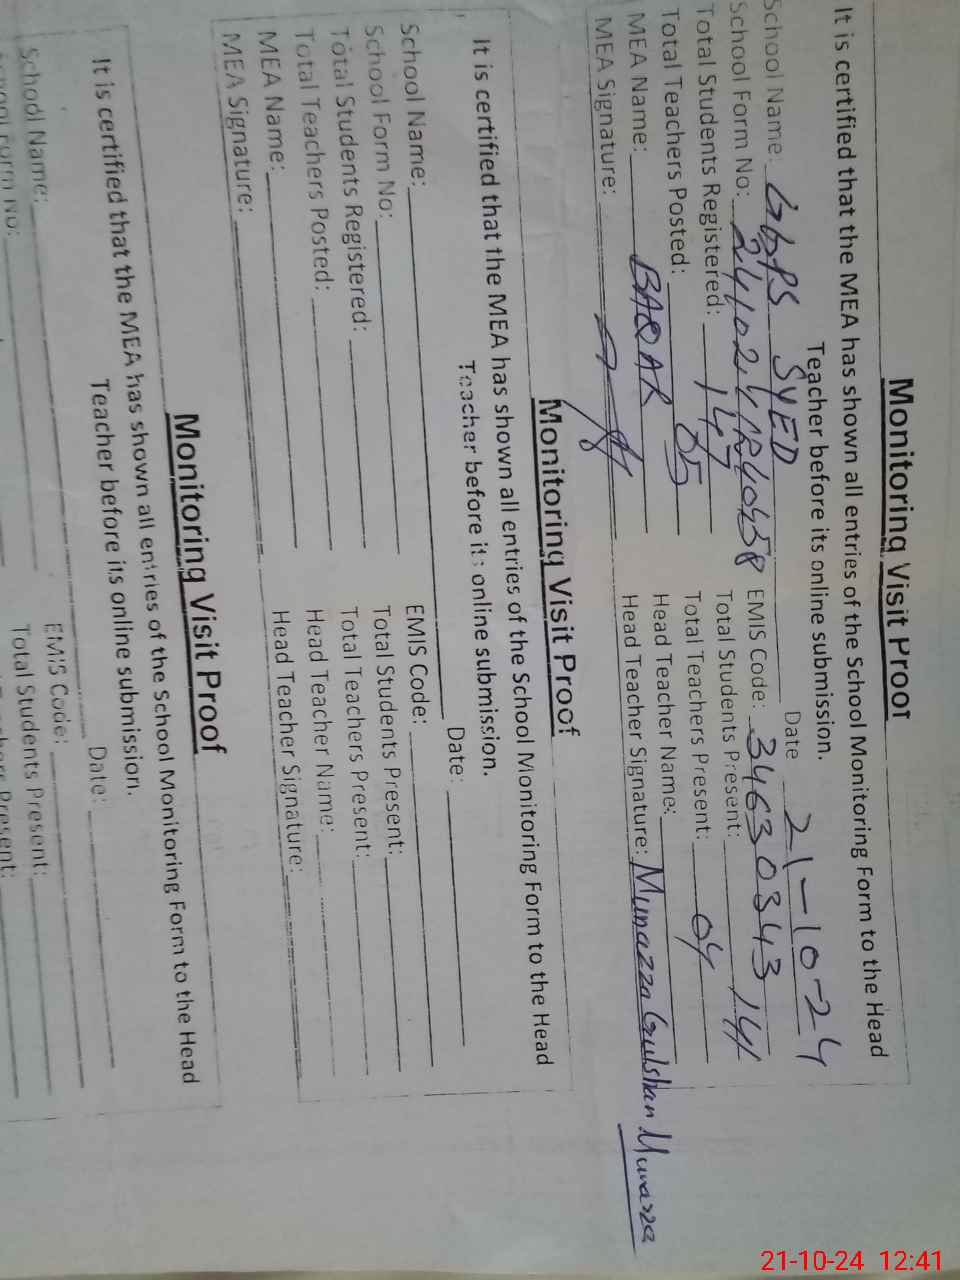 Monitoring Visit Proof
It is certified that the MEA has shown all entries of the School Monitoring Form to the Head
Teacher before its online submission.
Date 21-10-24
School Name: GGPS SYED
School Form No: EMIS Code: 34630343
Total Students Registered: 147 Total Students Present: 141
Total Teachers Posted: 05 Total Teachers Present: 04
MEA Name: BAQAR Head Teacher Name:
MEA Signature: Head Teacher Signature: Munazza Gulshan Munazza
Monitoring Visit Proof
It is certified that the MEA has shown all entries of the School Monitoring Form to the Head
Teacher before its online submission.
Date:
School Name:
School Form No: EMIS Code:
Total Students Registered: Total Students Present:
Total Teachers Posted: Total Teachers Present:
MEA Name: Head Teacher Name:
MEA Signature: Head Teacher Signature:
Monitoring Visit Proof
It is certified that the MEA has shown all entries of the School Monitoring Form to the Head
Teacher before its online submission.
Date:
School Name:
School Form No: EMIS Code:
Total Students Present:
Present:
21-10-24 12:41